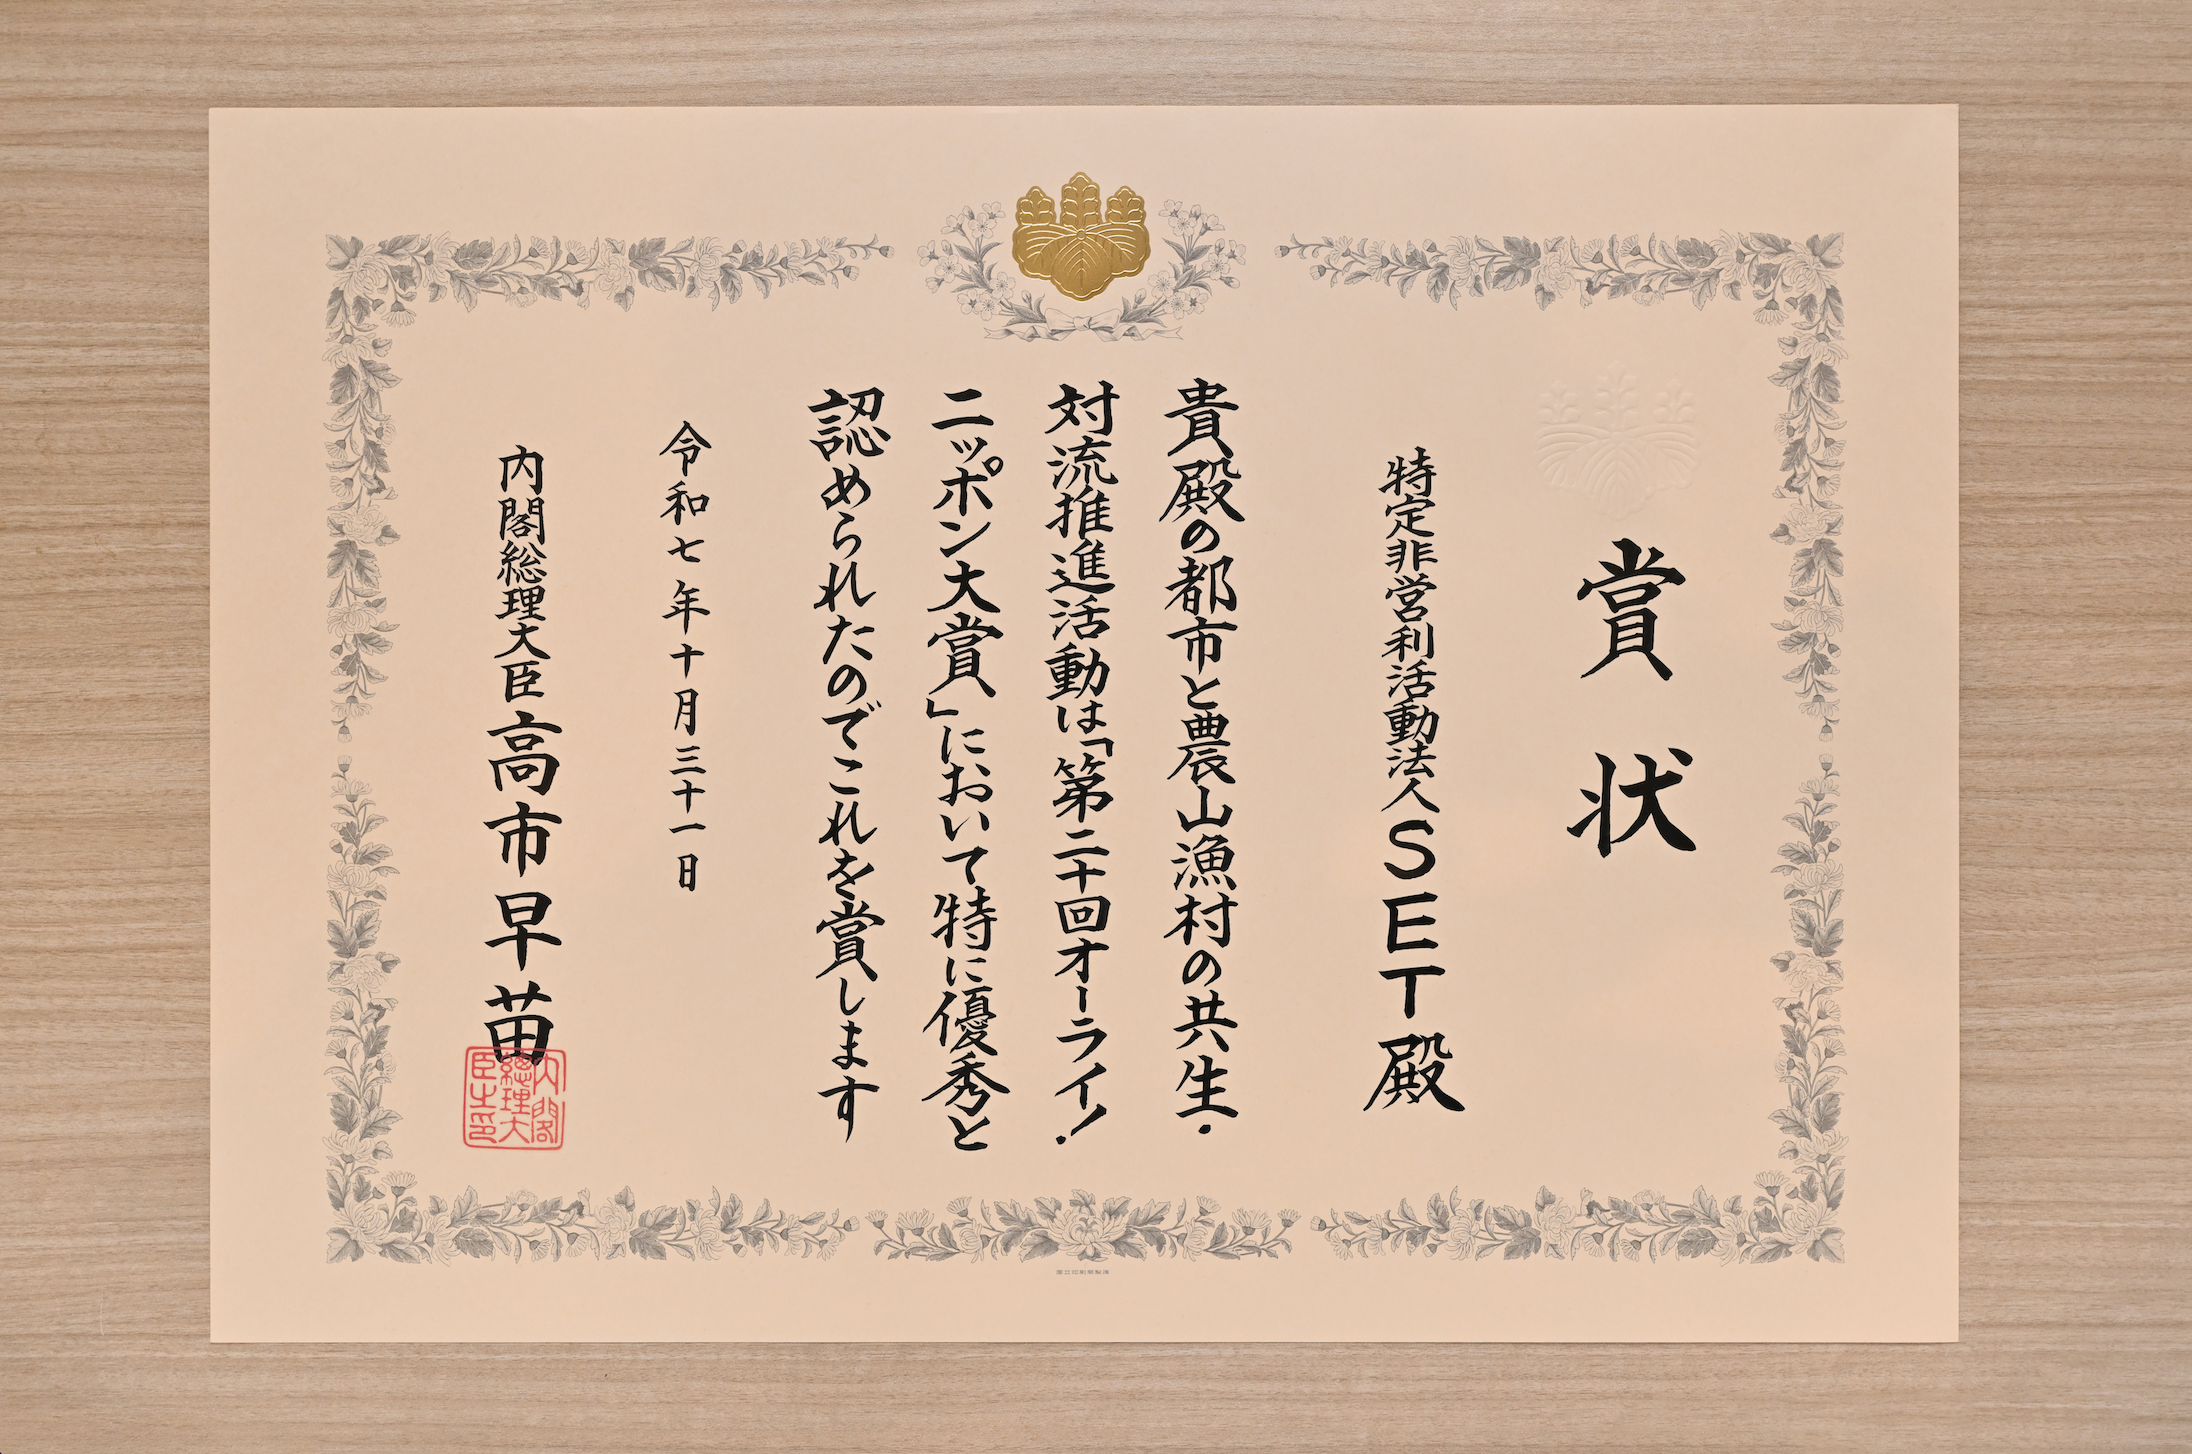 賞状
特定非営利活動法人SET殿
貴殿の都市と農山漁村の共生・
対流推進活動は「第二十回オーライ!
ニッポン大賞」において特に優秀と
認められたのでこれを賞します
令和七年十月三十一日
内閣総理大臣高市早苗
内閣
總理大
臣之印
国立印刷局製造